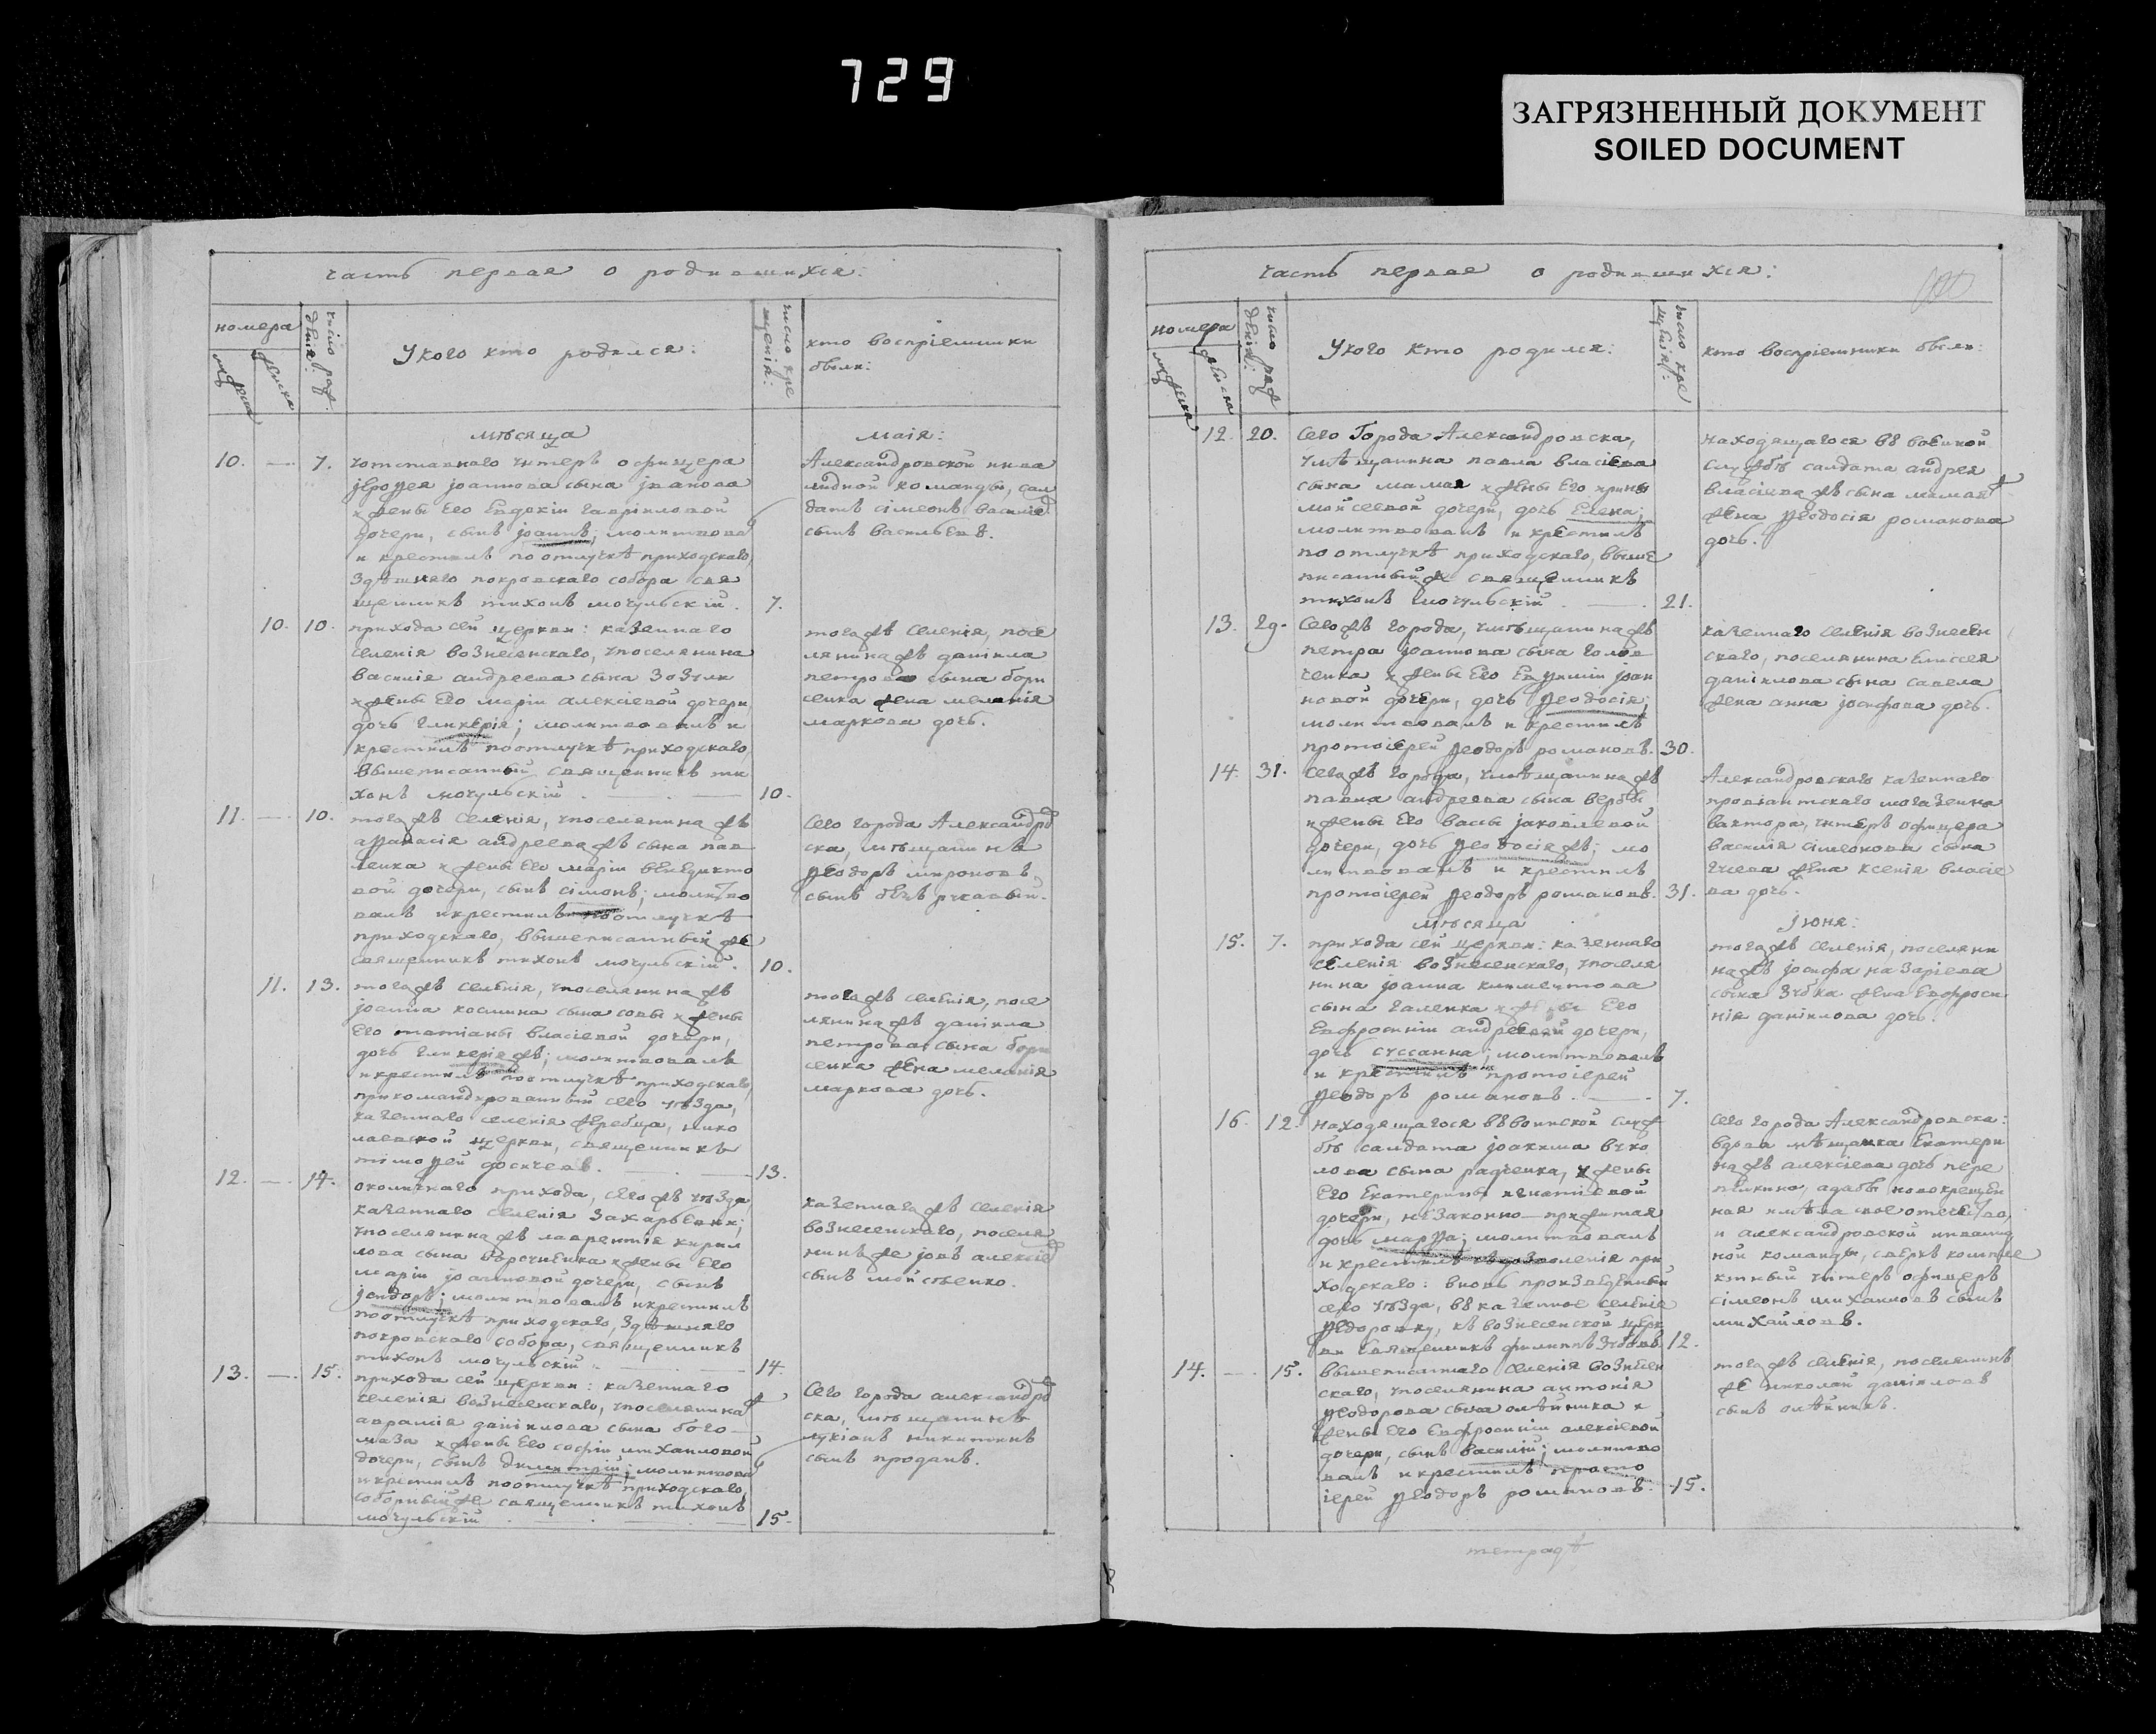 729
ЗАГРЯЗНЕННЫЙ ДОКУМЕНТ
SOILED DOCUMENT
часть первая о родившихся:
номера
Укого кто родился:
кто воспріемники
были:
мѣсяца
маія:
10. — 7. уотставнаго унтеръ офицера
іероѳея іоаннова сына іванова
жены его Евдокіи гавріиловой
дочери, сынъ іоаннъ; молитвова
и крестилъ поотлучкѣ приходскаго,
здѣшняго покровскаго собора свя
щенникъ тихонъ мочульскій. 7.
Александровской инва
лидной команды, сол
датъ сімеонъ василіе
сынъ васильевъ.
10. 10. прихода сей церкви: казеннаго
селенія вознесенскаго, упоселянина
василія андреева сына зозули
жены его маріи алексіевой дочери
дочь гликерія; молитвовалъ и
крестилъ поотлучкѣ приходскаго,
вышеписанный священникъ ти
хонъ мочульскій. 10.
тогожъ селенія, посе
лянинажъ даніила
петрова сына бори
сенка жена меланія
маркова дочь.
11. — 10. тогожъ селенія, упоселянинажъ
аѳанасія андрееважъ сына пав
ленка жены его маріи венедикто
вой дочери, сынъ сімонъ; молитво
валъ икрестилъ поотлучкѣ
приходскаго, вышеписанный же
священникъ тихонъ мочульскій. 10.
сего города Александро
ска, мѣщанинъ
ѳеодоръ мироновъ
сынъ безрукавый.
11. 13. тогожъ селенія, упоселянинажъ
іоанна космина сына совы жены
его татіаны власіевой дочери,
дочь гликеріяжъ; молитвовалъ
икрестилъ поотлучкѣ приходскаго,
прикомандированный сего уѣзда,
казеннаго селенія жеребца, нико
лаевской церкви, священникъ
тімоѳей досичевъ. 13.
тогожъ селенія, посе
лянинажъ даніила
петрова сына бори
сенка жена меланія
маркова дочь.
12. — 14. околичнаго прихода, сегожъ уѣзда,
казеннаго селенія захарьевки;
упоселянинажъ лаврентія кирил
лова сына жены его
маріи іоанновой дочери, сынъ
ісидоръ; молитвовалъ икрестилъ
поотлучкѣ приходскаго, здѣшняго
покровскаго собора, священникъ
тихонъ мочульскій. 14.
казеннагожъ селенія
вознесенскаго, поселя
нинъ же іовъ алексіе
сынъ мойсѣенко.
13. — 15. прихода сей церкви: казеннаго
селенія вознесенскаго, упоселянина
аврамія даніилова сына бого
маза жены его софіи михаиловой
дочери, сынъ димитрій; молитвова
икрестилъ поотлучкѣ приходскаго,
соборный же священникъ тихонъ
мочульскій 15.
сего города александро
ска, мѣщанинъ
лукіанъ никитинъ
сынъ проданъ.
часть первая о родившихся:
номера
Укого кто родился:
кто воспріемники были:
12. 20. сего города Александровска,
умѣщанина павла власіева
сына мамая жены его ирины
мойсеевой дочери, дочь Елена;
молитвовалъ и крестилъ
поотлучкѣ приходскаго, выше
писанный же священникъ
тихонъ мочульскій. 21.
находящагося въ военной
службѣ салдата андрея
власіева сына мамая
жена ѳеодосія романова
дочь.
13. 29. сегожъ города, умѣщанинажъ
петра іоаннова сына голов
ченка жены его Евѳиміи іоан
новой дочери, дочь ѳеодосія;
молитвовалъ и крестилъ
протоіерей ѳеодоръ романовъ. 30.
казеннаго селенія вознесен
скаго, поселянина елиссея
даніилова сына савела
жена анна іосифова дочь.
14. 31. сегожъ города, умѣщанинажъ
павла андреева сына вербы
жены его вассы іаковлевой
дочери, дочь ѳеодосіяжъ; мо
литвовалъ и крестилъ
протоіерей ѳеодоръ романовъ. 31.
Александровскаго казеннаго
провіантскаго могазеина
вахтора, унтеръ офицера
василія сімеонова сына
жена ксенія власіе
ва дочь.
мѣсяца
Іюня:
15. 7. прихода сей церкви: казеннаго
селенія вознесенскаго, упоселя
нина іоанна климентова
сына галенка жены его
Евфросиніи андреевой дочери,
дочь суссанна; молитвовалъ
и крестилъ протоіерей
ѳеодоръ романовъ. 7.
тогожъ селенія, поселяни
нажъ іосифа назаріева
сына зубка жена Евфроси
нія даніилова дочь.
16. 12. находящагося ввоинской служ
бѣ салдата іоакима вуко
лова сына радченка, жены
его Екатерины игнатіевой
дочери, незаконно прижитая
дочь марѳа; молитвовалъ
и крестилъ изъ дозволенія при
ходскаго: вновь произведенный
сего уѣзда, въ казенное селеніе
ѳедоровку, къ вознесенской церк
ви священникъ филиппъ зубовъ. 12.
сего города Александровска:
вдова мѣщанка Екатери
нажъ алексіева дочь пере
пелкино, адабы новокрещен
ная имѣла свое отечество,
и александровской инвалид
ной команды, сверхъ компле
ктный унтеръ офицеръ
сімеонъ михаиловъ сынъ
михайловъ.
14. — 15. вышеписаннаго селенія вознесен
скаго, упоселянина антонія
ѳеодорова сына олѣйника
жены его Евфросиніи алексіевой
дочери, сынъ василій; молитво
валъ икрестилъ прото
іерей ѳеодоръ романовъ. 15.
тогожъ селенія, поселянинъ
же николай даніиловъ
сынъ олѣйникъ.
тетрадь